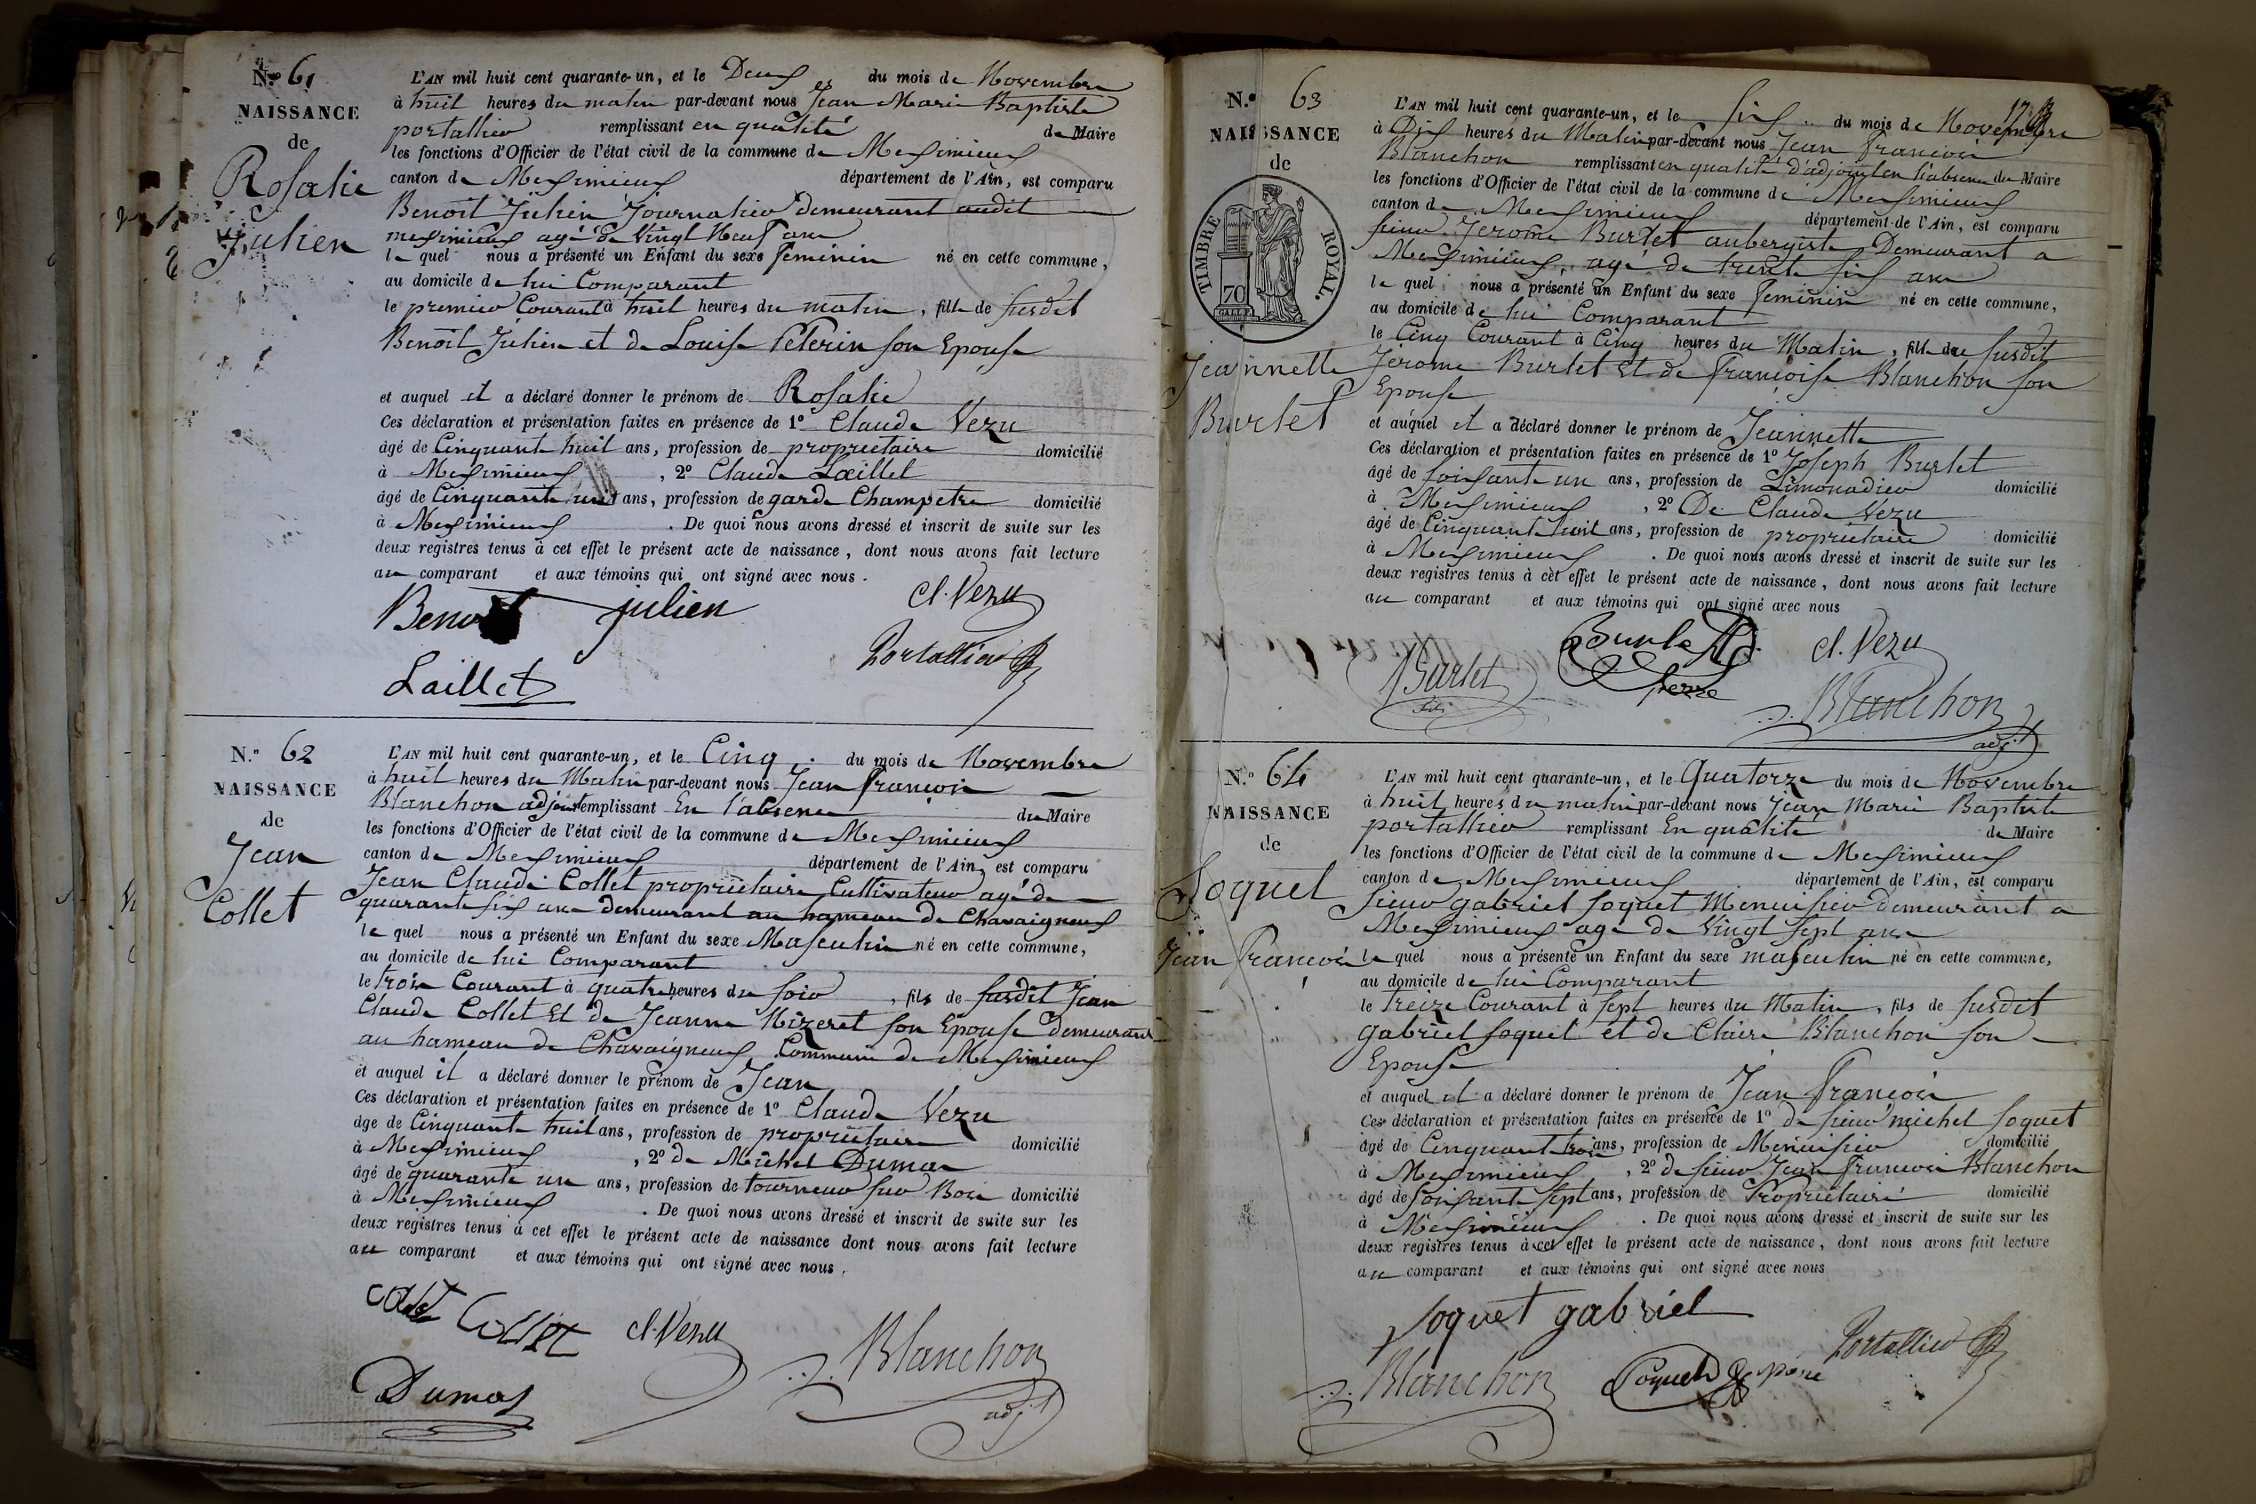 N.º 61
NAISSANCE
de
Rosalie
Julien
L'AN mil huit cent quarante-un, et le Deux du mois de Novembre
à huit heures du matin par-devant nous Jean Marie Baptiste
portallier remplissant en qualité de Maire
les fonctions d'Officier de l'état civil de la commune de Meximieux
canton de Meximieux département de l'Ain, est comparu
Benoit Julien Journalier demeurant audit
meximieux agé de Vingt Neuf ans
le quel nous a présenté un Enfant du sexe feminin né en cette commune,
au domicile de lui Comparant
le premier Courant à huit heures du matin, fille de susdit
Benoit Julien et de Louise Pélerin son Epouse
et auquel il a déclaré donner le prénom de Rosalie
Ces déclaration et présentation faites en présence de 1º Claude Vezu
âgé de Cinquante huit ans, profession de propriétaire domicilié
à Meximieux, 2º Claude Laillet
âgé de Cinquante un ans, profession de garde Champetre domicilié
à Meximieux. De quoi nous avons dressé et inscrit de suite sur les
deux registres tenus à cet effet le présent acte de naissance, dont nous avons fait lecture
au comparant et aux témoins qui ont signé avec nous.
Benoit julien cl. Vezu
Portallier
Laillet
N.º 62
NAISSANCE
de
Jean
Collet
L'AN mil huit cent quarante-un, et le Cinq du mois de Novembre
à huit heures du Matin par-devant nous Jean françois
Blanchon adjoint remplissant En l'absence du Maire
les fonctions d'Officier de l'état civil de la commune de Meximieux
canton de Meximieux département de l'Ain, est comparu
Jean Claude Collet propriétaire Cultivateur agé de
quarante six ans demeurant au hameau de Chavaigneux
le quel nous a présenté un Enfant du sexe Masculin né en cette commune,
au domicile de lui Comparant
le trois Courant à quatre heures du soir, fils de susdit Jean
Claude Collet Et de Jeanne Mizeret son Epouse demeurant
au hameau de Chavaigneux, Commune de Meximieux
et auquel il a déclaré donner le prénom de Jean
Ces déclaration et présentation faites en présence de 1º Claude Vezu
âgé de Cinquante huit ans, profession de propriétaire domicilié
à Meximieux, 2º de Michel Dumas
âgé de quarante un ans, profession de tourneur sur Bois domicilié
à Meximieux. De quoi nous avons dressé et inscrit de suite sur les
deux registres tenus à cet effet le présent acte de naissance dont nous avons fait lecture
au comparant et aux témoins qui ont signé avec nous.
Collet cl. Vezu Blanchon
adj.t
Dumas
N.º 63
NAISSANCE
de
TIMBRE ROYAL.
70
Jeannette
Burlet
L'AN mil huit cent quarante-un, et le Six du mois de Novembre
à Dix heures du Matin par-devant nous Jean françois
Blanchon remplissant en qualité d'adjoint en l'absence du Maire
les fonctions d'Officier de l'état civil de la commune de Meximieux
canton de Meximieux département de l'Ain, est comparu
sieur Jerome Burlet aubergiste Demeurant a
Meximieux, agé de trente six ans
le quel nous a présenté un Enfant du sexe feminin né en cette commune,
au domicile de lui Comparant
le Cinq Courant à Cinq heures du Matin, fille du susdit
Jerome Burlet Et de françoise Blanchon son
Epouse
et auquel il a déclaré donner le prénom de Jeannette
Ces déclaration et présentation faites en présence de 1º Joseph Burlet
âgé de soixante un ans, profession de Limonadier domicilié
à Meximieux, 2º De Claude Vezu
âgé de Cinquante huit ans, profession de propriétaire domicilié
à Meximieux. De quoi nous avons dressé et inscrit de suite sur les
deux registres tenus à cet effet le présent acte de naissance, dont nous avons fait lecture
au comparant et aux témoins qui ont signé avec nous
Burlet Burlet cl. Vezu
fils père Blanchon
adj.t
N.º 64
NAISSANCE
de
Soquet
Jean françois
L'AN mil huit cent quarante-un, et le Quatorze du mois de Novembre
à huit heures du matin par-devant nous Jean Marie Baptiste
portallier remplissant En qualité de Maire
les fonctions d'Officier de l'état civil de la commune de Meximieux
canton de Meximieux département de l'Ain, est comparu
sieur gabriel soquet Menuisier demeurant a
Meximieux agé de Vingt sept ans
le quel nous a présenté un Enfant du sexe masculin né en cette commune,
au domicile de lui Comparant
le treize Courant à sept heures du Matin, fils de susdit
gabriel soquet et de Claire Blanchon son
Epouse
et auquel il a déclaré donner le prénom de Jean françois
Ces déclaration et présentation faites en présence de 1º de sieur michel soquet
âgé de Cinquante trois ans, profession de Menuisier domicilié
à Meximieux, 2º de sieur Jean francois Blanchon
âgé de soixante sept ans, profession de Propriétaire domicilié
à Meximieux. De quoi nous avons dressé et inscrit de suite sur les
deux registres tenus à cet effet le présent acte de naissance, dont nous avons fait lecture
au comparant et aux témoins qui ont signé avec nous
soquet gabriel
Portallier
Blanchon Soquet père